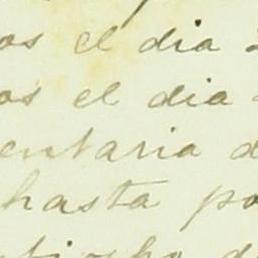 os el dia 2
os el dia
entaria d
hasta po